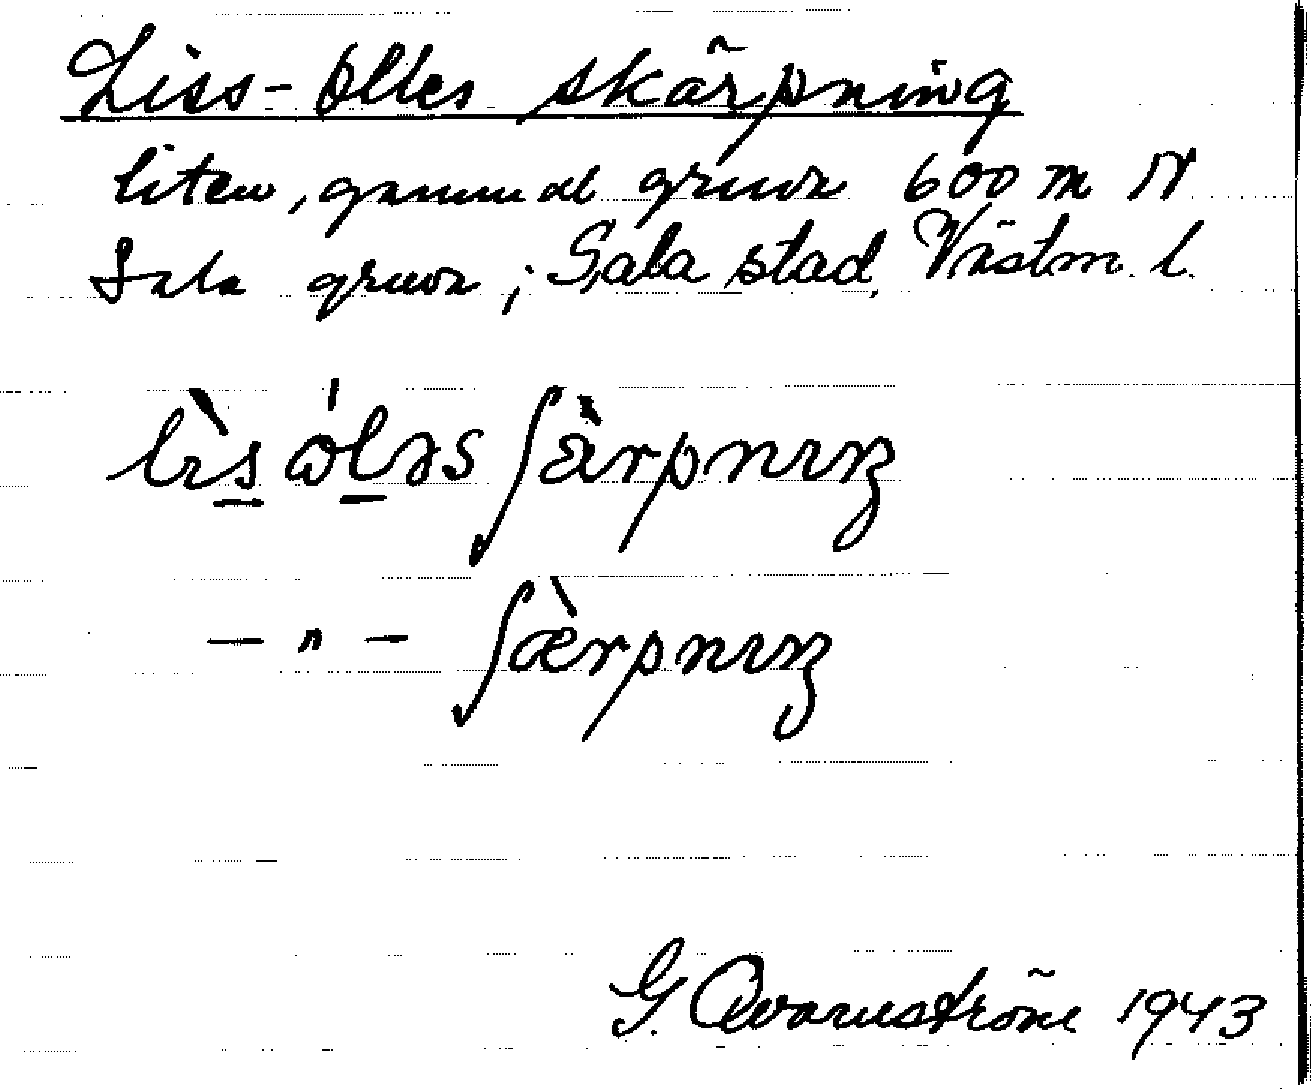 Liss-Olles skärpning
liten, gammal gruva 600 m N
Sala gruva; Sala stad, Västm. l.
lìs ɷ́ləs ʃàrpnɪŋ
— " — ʃæ̀rpnɪŋ
G. Qvarnström 1943